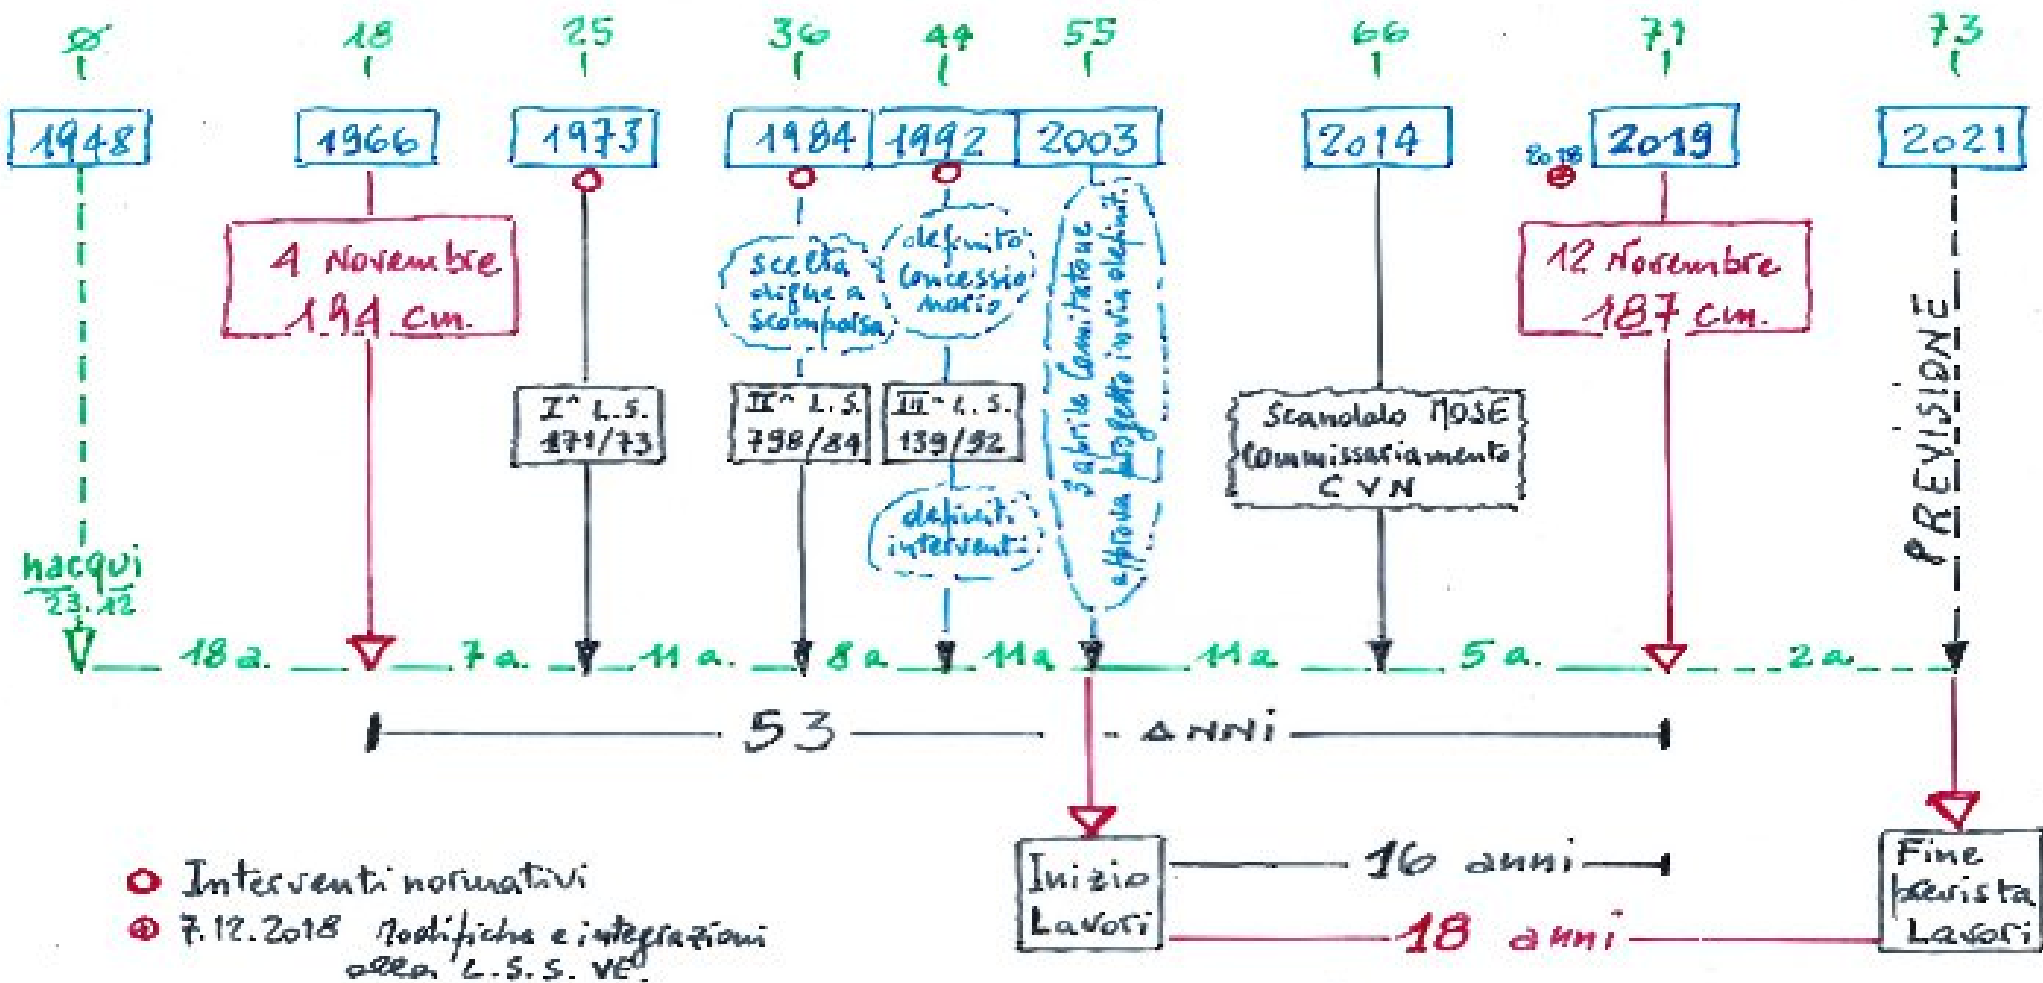 ø 18 25 36 44 55 66 71 73
1948 1966 1973 1984 1992 2003 2014 2018 2019 2021
4 Novembre
194 cm.
scelta
dighe a
scomparsa
definito
concessio
nario
3 aprile Comitatone
approva progetto invia definit.
12 Novembre
187 cm.
PREVISIONE
I^ L.S.
171/73
II^ L.S.
798/84
III^ L.S.
139/92
definiti
interventi
Scandalo MOSE
Commissariamento
CVN
nacqui
23.12
18 a. 7 a. 11 a. 8 a 11 a 11 a 5 a. 2 a
53 ANNI
Inizio
Lavori
16 anni
18 anni
Fine
prevista
Lavori
Interventi normativi
7.12.2018 Modifiche e integrazioni
alla L.S.S. VE